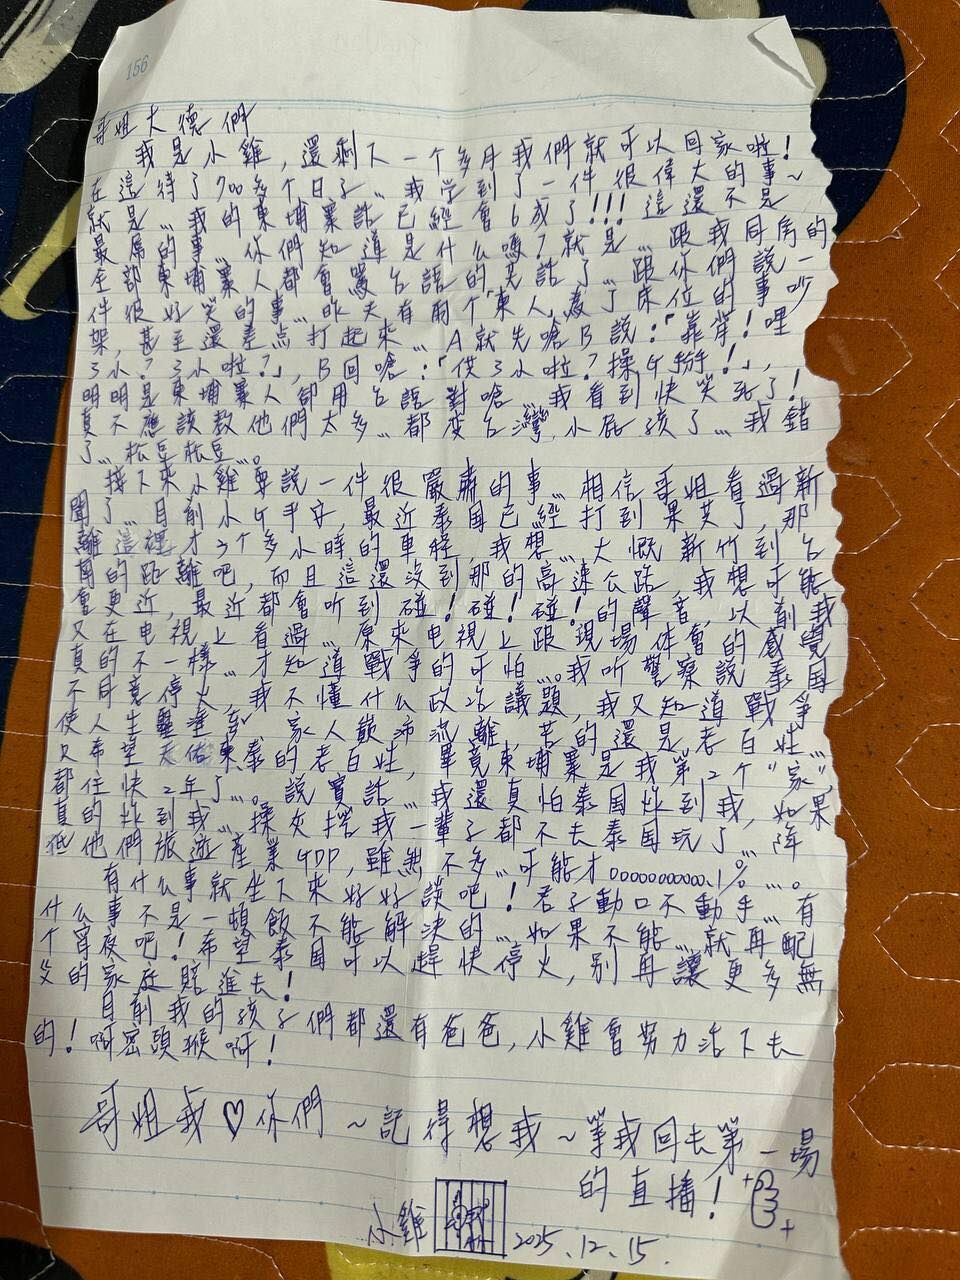 156
哥姐大德們
我是小雞，還剩下一个多月我們就可以回家啦！
在這待了700多个日子…我学到了一件很偉大的事~
就是…我的柬埔寨話已經會6成了!!!這還不是
最屌的事…你們知道是什么嗎？就是…跟我同房的
全部柬埔寨人都會罵台語的克話了…跟你們說一
件很好笑的事…昨天有兩个「柬人」為了床位的事吵
架，甚至還差点打起來…A就先嗆B說：「靠背！哩
3小？3小啦？」，B回嗆：「供3小啦？操你掰！」，
明明是柬埔寨人卻用台語對嗆…我看到快笑死了！
真不應該教他們太多…都变台灣小屁孩了…我錯
了…松豆松豆…。
接下來小雞要說一件很嚴肅的事…相信哥姐看過新
聞了…目前小G平安，最近泰国已經打到菓芠了，那
離這裡才3个多小時的車程，我想…大概新竹到台
南的距離吧，而且這還沒到那的高速公路，我想可能
會更近，最近都會听到碰！碰！碰！的聲音，以前我
只在电視上看過…原來电視上跟現場体會的感覺
真的不一樣…才知道戰爭的可怕…。我听警察說泰国
不月意停火，我不懂什么政治議題，我只知道戰爭
使人生靈塗炭，家人顛沛流離，苦的還是老百姓…
只希望天佑柬泰的老百姓，畢竟柬埔寨是我第2个“家”，
都住快2年了…。說實話…我還真怕泰国炸到我，如果
真的炸到我…操女掰我一輩子都不去泰国玩了…降
低他們旅遊產業GDP，雖然不多…可能才0.0000000001%…。
有什么事就坐下來好好談吧！君子動口不動手…有
什么事不是一頓飯不能解決的…如果不能…就再配
个宵夜吧！希望泰国可以趕快停火，别再讓更多無
辜的家庭賠進去！
目前我的孩子們都還有爸爸，小雞會努力活下去
的！啊密頭猴啊！
哥姐我♡你們~記得想我~等我回去第一場
的直播！
小雞 2025.12.15.